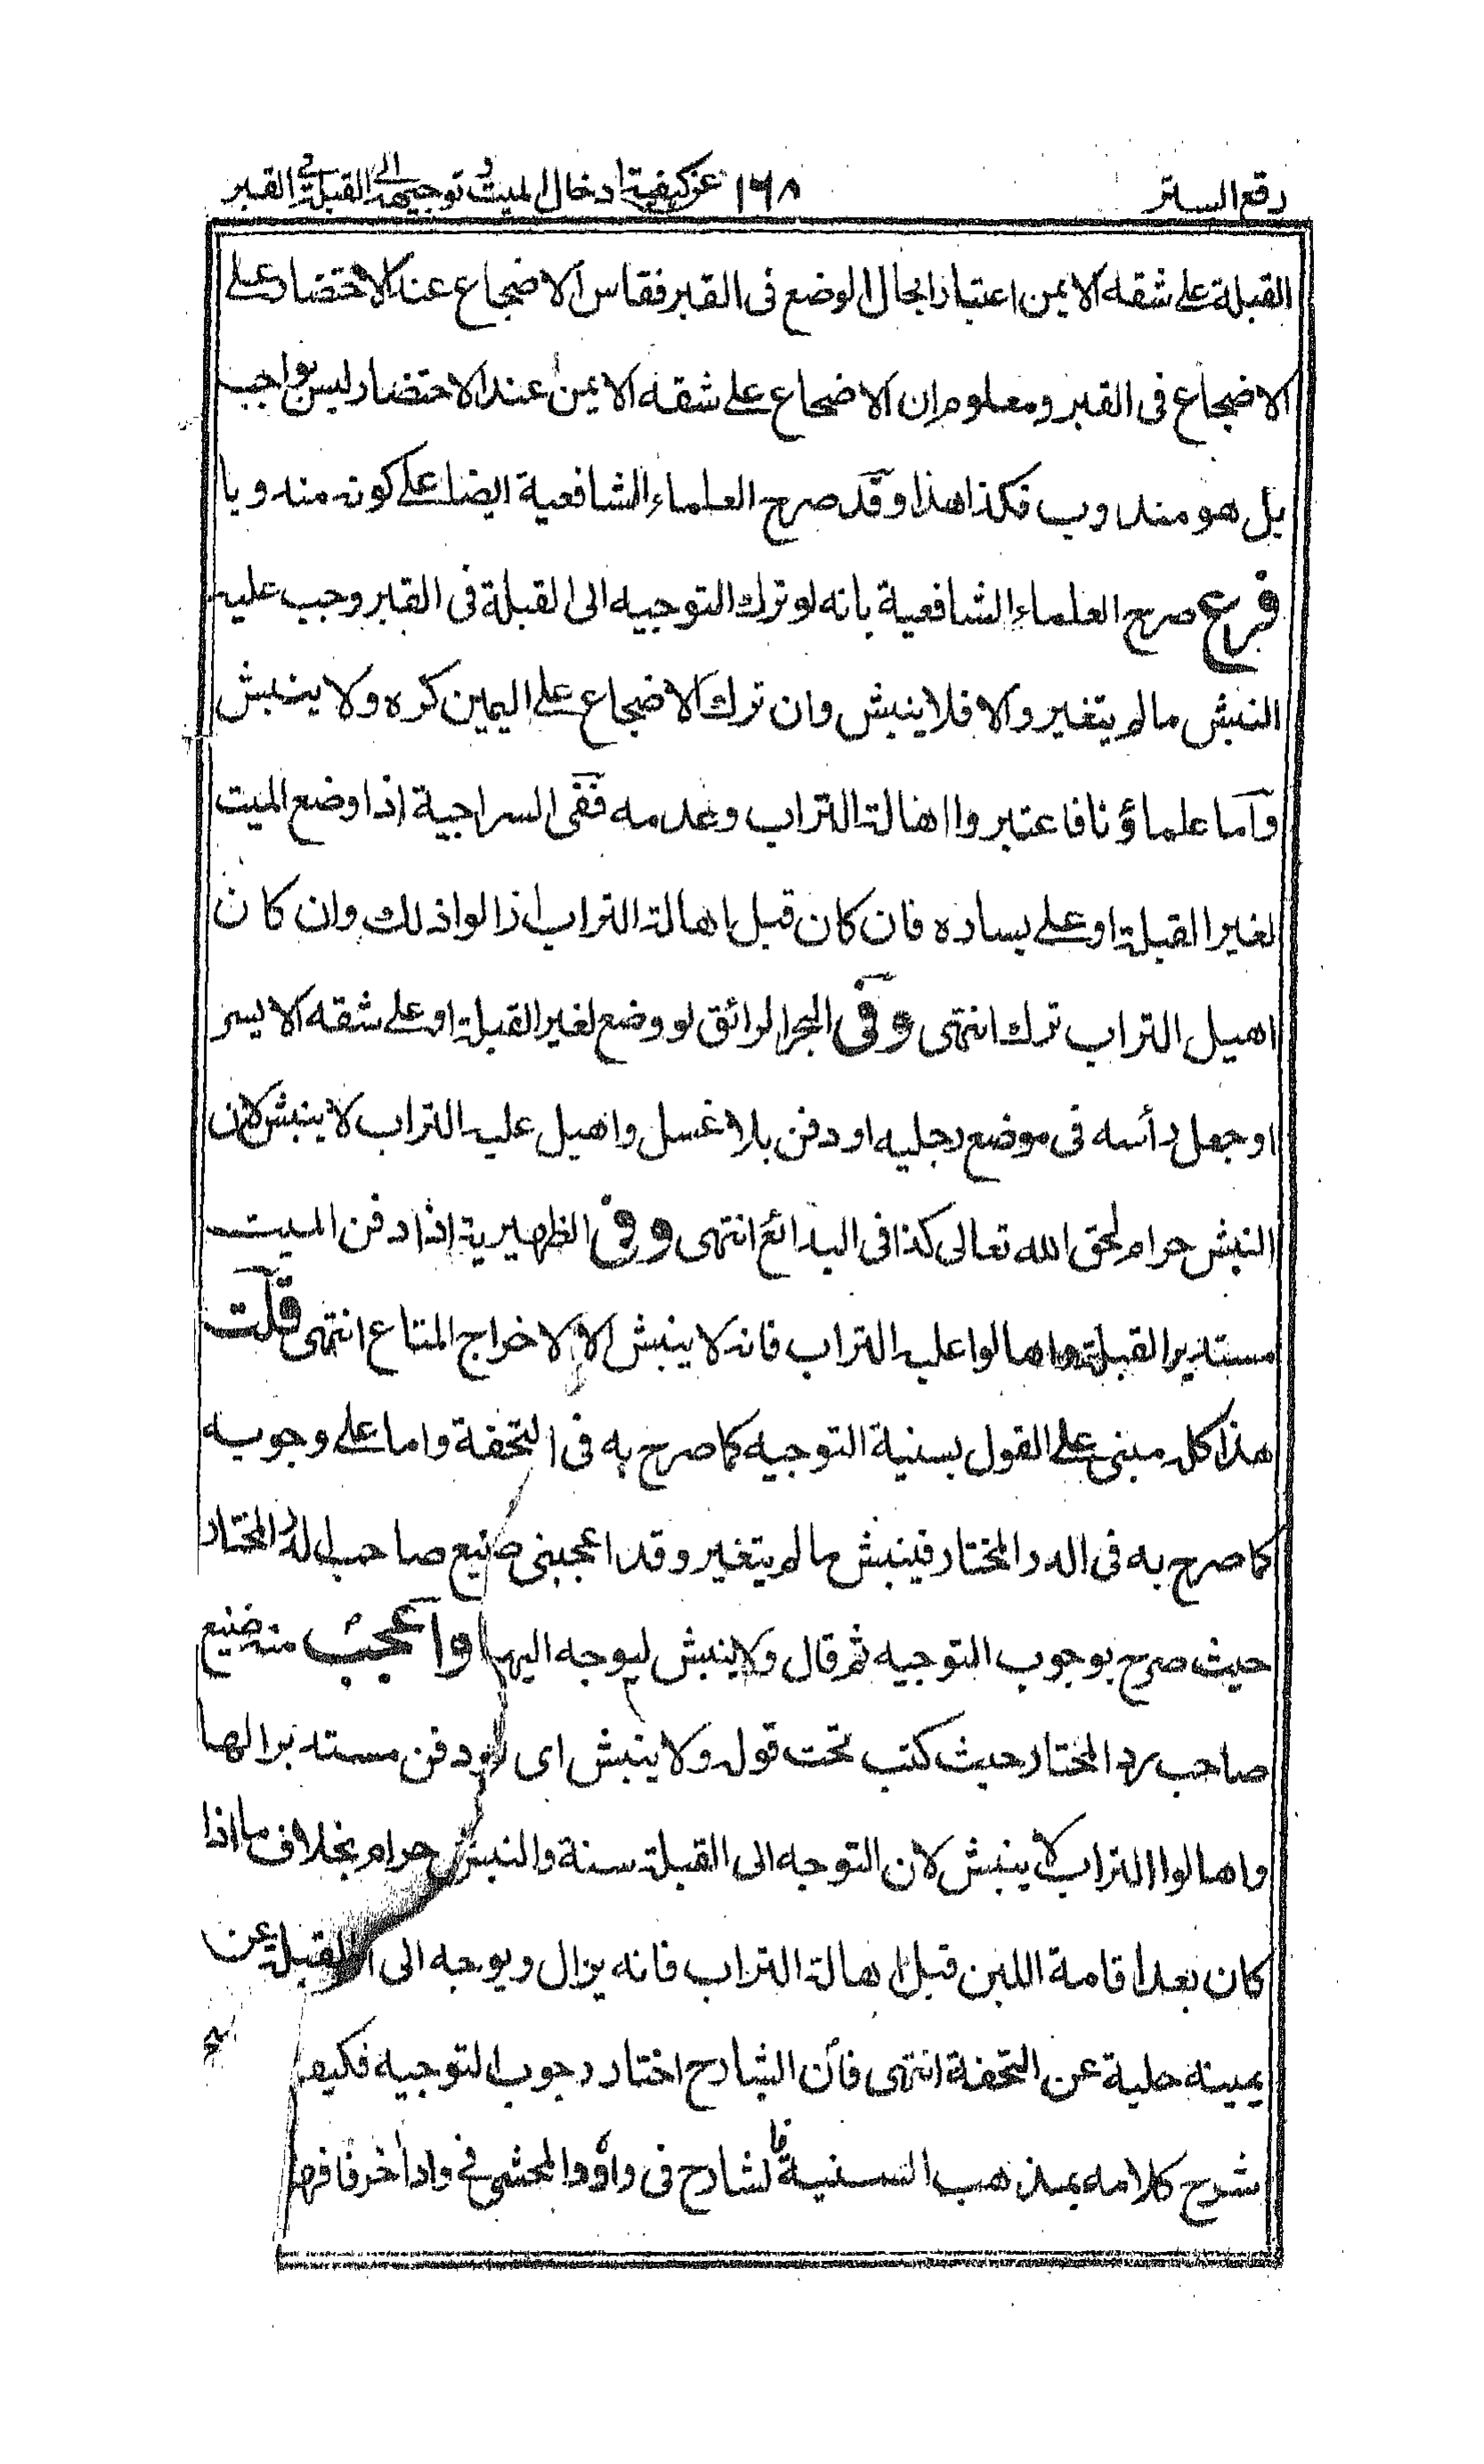 رفع الستر ١٦٨ عن كيفية ادخال الميت و توجيهه الى القبلة في القبر
القبلة على شقه الايمن اعتبارا بحال الوضع فى القبر فقاس الاضجاع عند الاحتضار على
الاضجاع فى القبر ومعلوم ان الاضجاع على شقه الايمن عند الاحتضار ليس بواجب
بل هو مندوب فكذا هذا وقد صرح العلماء الشافعية ايضا على كونه مندوبا
فرع صرح العلماء الشافعية بانه لو ترك التوجيه الى القبلة فى القبر وجب عليه
النبش ما لم يتغير والا فلا ينبش وان ترك الاضجاع على اليمين كره ولا ينبش
واما علماؤنا فاعتبروا اهالة التراب وعدمه ففى السراجية اذا وضع الميت
لغير القبلة او على يساره فان كان قبل اهالة التراب ازالوا ذلك وان كان
اهيل التراب ترك انتهى وفى البحر الرائق لو وضع لغير القبلة او على شقه الايسر
او جعل رأسه فى موضع رجليه او دفن بلا غسل واهيل عليه التراب لا ينبش لان
النبش حرام لحق الله تعالى كذا فى البدائع انتهى وفى الظهيرية اذا دفن الميت
مستدبر القبلة واهالوا عليه التراب فانه لا ينبش الا لاخراج المتاع انتهى قلت
هذا كله مبنى على القول بسنية التوجيه كما صرح به فى التحفة واما على وجوبه
كما صرح به فى الدر المختار فينبش ما لم يتغير وقد اعجبنى صنيع صاحب الدر المختار
حيث صرح بوجوب التوجيه ثم قال ولا ينبش ليوجه اليها واعجب منه صنيع
صاحب رد المختار حيث كتب تحت قوله ولا ينبش اى لو دفن مستدبرا لها
واهالوا التراب لا ينبش لان التوجه الى القبلة سنة والنبش حرام بخلاف ما اذا
كان بعد اقامة اللبن قبل اهالة التراب فانه يزال ويوجه الى القبلة عن
يمينه حلية عن التحفة انتهى فأن الشارح اختار وجوب التوجيه فكيف
شرح كلامه بمذهب السنية فالشارح فى واد والمحشى في واد اخر فافهم